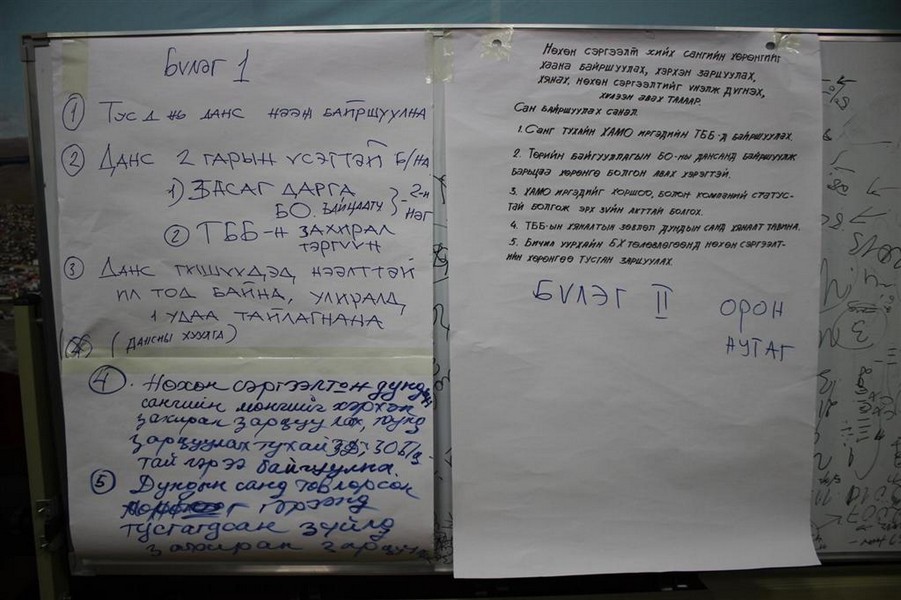 БҮЛЭГ 1
① ТУСД НЬ ДАНС НЭЭЖ БАЙРШУУЛНА
② ДАНС 2 ГАРЫН ҮСЭГТЭЙ Б/НА
1) ЗАСАГ ДАРГА
БО. БАЙЦААГЧ
2-Н
НЭГ
② ТББ-Н ЗАХИРАЛ
ТЭРГҮҮН
③ ДАНС ГИШҮҮДЭД НЭЭЛТТЭЙ
ИЛ ТОД БАЙНА, УЛИРАЛД
1 УДАА ТАЙЛАГНАНА
(ДАНСНЫ ХУУЛГА)
④. Нөхөн сэргээлтэн дундын
сангийн мөнгийг хэрхэн
захиран зарцуулах,
зарцуулах тухай ЗД,
тай гэрээ байгуулна.
⑤ Дундын санд төвлөрсөн
гэрээнд
тусгагдсан зүйлд
захиран зарцуу
НӨХӨН СЭРГЭЭЛТ ХИЙХ САНГИЙН ХӨРӨНГИЙГ
ХААНА БАЙРШУУЛАХ, ХЭРХЭН ЗАРЦУУЛАХ,
ХЯНАХ, НӨХӨН СЭРГЭЭЛТИЙГ ҮНЭЛЖ ДҮГНЭХ,
ХҮЛЭЭН АВАХ ТАЛААР.
САН БАЙРШУУЛАХ САНАЛ.
1. САНГ ТУХАЙН ХАМО ИРГЭДИЙН ТББ-Д БАЙРШУУЛАХ.
2. ТӨРИЙН БАЙГУУЛЛАГЫН БО-НЫ ДАНСАНД БАЙРШУУЛЖ
БАРЬЦАА ХӨРӨНГӨ БОЛГОН АВАХ ХЭРЭГТЭЙ.
3. ХАМО ИРГЭДИЙГ ХОРШОО, БОЛОН КОМПАНИЙ СТАТУС-
ТАЙ БОЛГОЖ ЭРХ ЗҮЙН АКТТАЙ БОЛГОХ.
4. ТББ-ЫН ХЯНАЛТЫН ЗӨВЛӨЛ ДУНДЫН САНД ХЯНАЛТ ТАВИНА.
5. БИЧИЛ УУРХАЙН БХ ТӨЛӨВЛӨГӨӨНД НӨХӨН СЭРГЭЭЛТ-
ИЙН ХӨРӨНГӨӨ ТУСГАН ЗАРЦУУЛАХ.
БҮЛЭГ II
ОРОН
НУТАГ